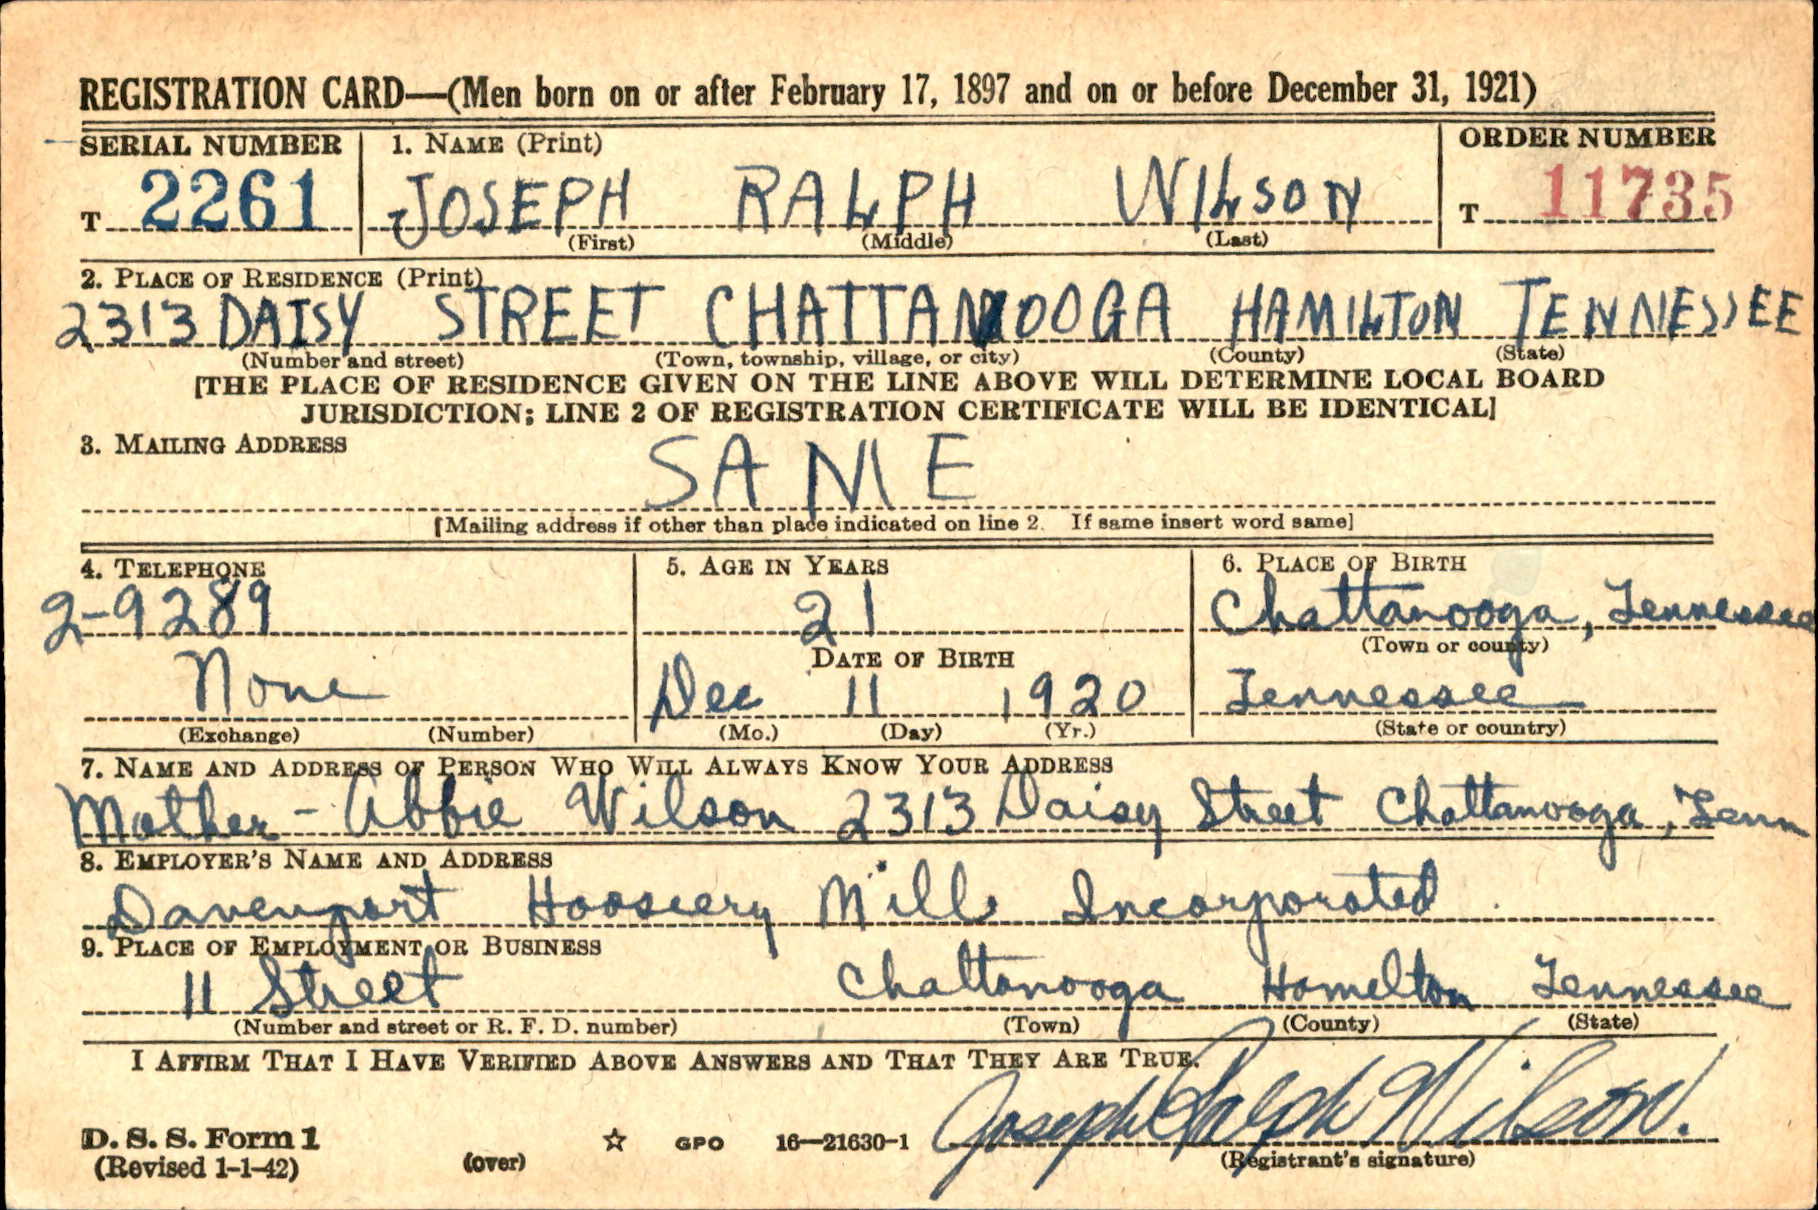 REGISTRATION CARD—(Men born on or after February 17, 1897 and on or before December 31, 1921)
SERIAL NUMBER 1. NAME (Print) ORDER NUMBER
T 2261 JOSEPH RALPH WILSON T 11735
(First) (Middle) (Last)
2. PLACE OF RESIDENCE (Print)
2313 DAISY STREET CHATTANOOGA HAMILTON TENNESSEE
(Number and street) (Town, township, village, or city) (County) (State)
[THE PLACE OF RESIDENCE GIVEN ON THE LINE ABOVE WILL DETERMINE LOCAL BOARD
JURISDICTION; LINE 2 OF REGISTRATION CERTIFICATE WILL BE IDENTICAL]
3. MAILING ADDRESS
SAME
[Mailing address if other than place indicated on line 2. If same insert word same]
4. TELEPHONE 5. AGE IN YEARS 6. PLACE OF BIRTH
2-9289 21 Chattanooga, Tennessee
DATE OF BIRTH (Town or county)
None Dec 11 1920 Tennessee
(Exchange) (Number) (Mo.) (Day) (Yr.) (State or country)
7. NAME AND ADDRESS OF PERSON WHO WILL ALWAYS KNOW YOUR ADDRESS
Mother - Abbie Wilson 2313 Daisy Street Chattanooga, Tenn
8. EMPLOYER'S NAME AND ADDRESS
Davenport Hoosiery Mills Incorporated
9. PLACE OF EMPLOYMENT OR BUSINESS
11 Street Chattanooga Hamelton Tennessee
(Number and street or R. F. D. number) (Town) (County) (State)
I AFFIRM THAT I HAVE VERIFIED ABOVE ANSWERS AND THAT THEY ARE TRUE.
Joseph Ralph Wilson.
D. S. S. Form 1 ☆ GPO 16—21630-1
(Revised 1-1-42) (over) (Registrant's signature)